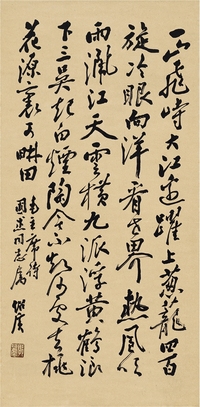 一山飛峙大江邊躍上蔥蘢四百
旋冷眼向洋看世界熱風吹
雨灑江天雲橫九派浮黃鶴浪
下三吳起白煙陶令不知何處去桃
花源裏可耕田
毛主席詩
同志屬